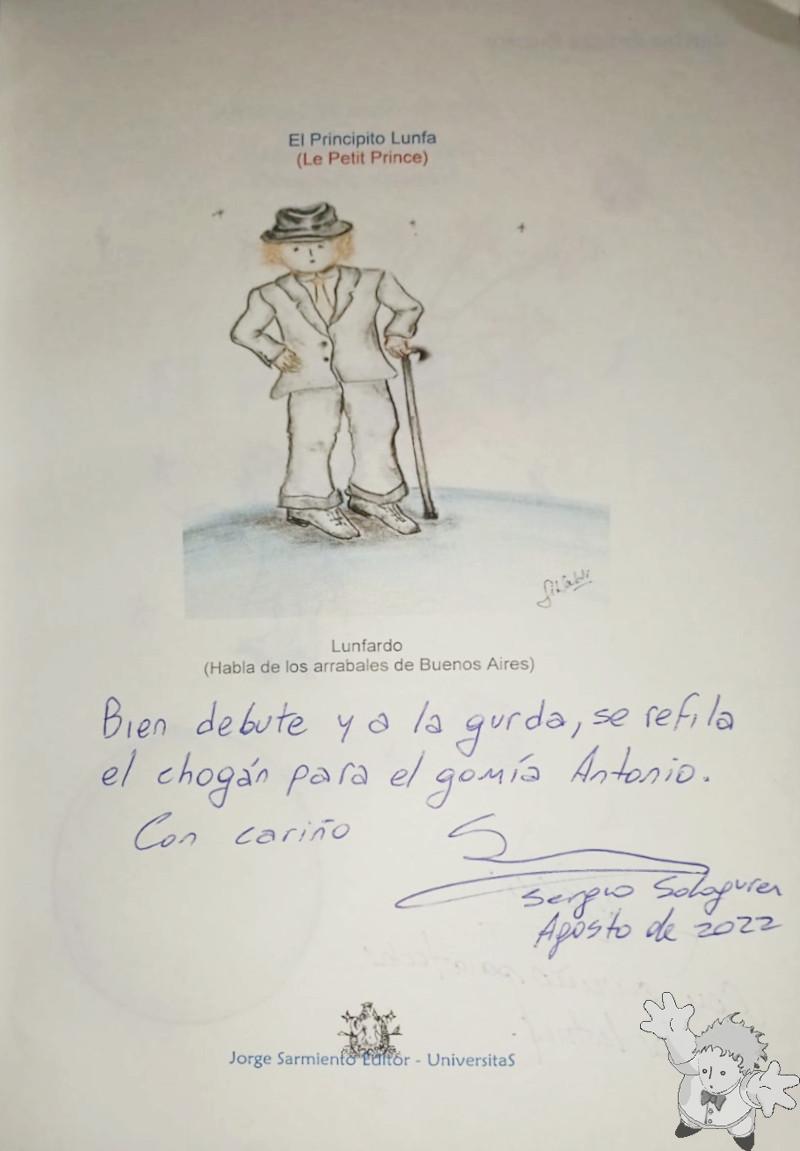 El Principito Lunfa
(Le Petit Prince)
Lunfardo
(Habla de los arrabales de Buenos Aires)
Bien debute y a la gurda, se refila
el chogán para el gomía Antonio.
Con cariño
Sergio Sologuren
Agosto de 2022
Jorge Sarmiento Editor - UniversitaS